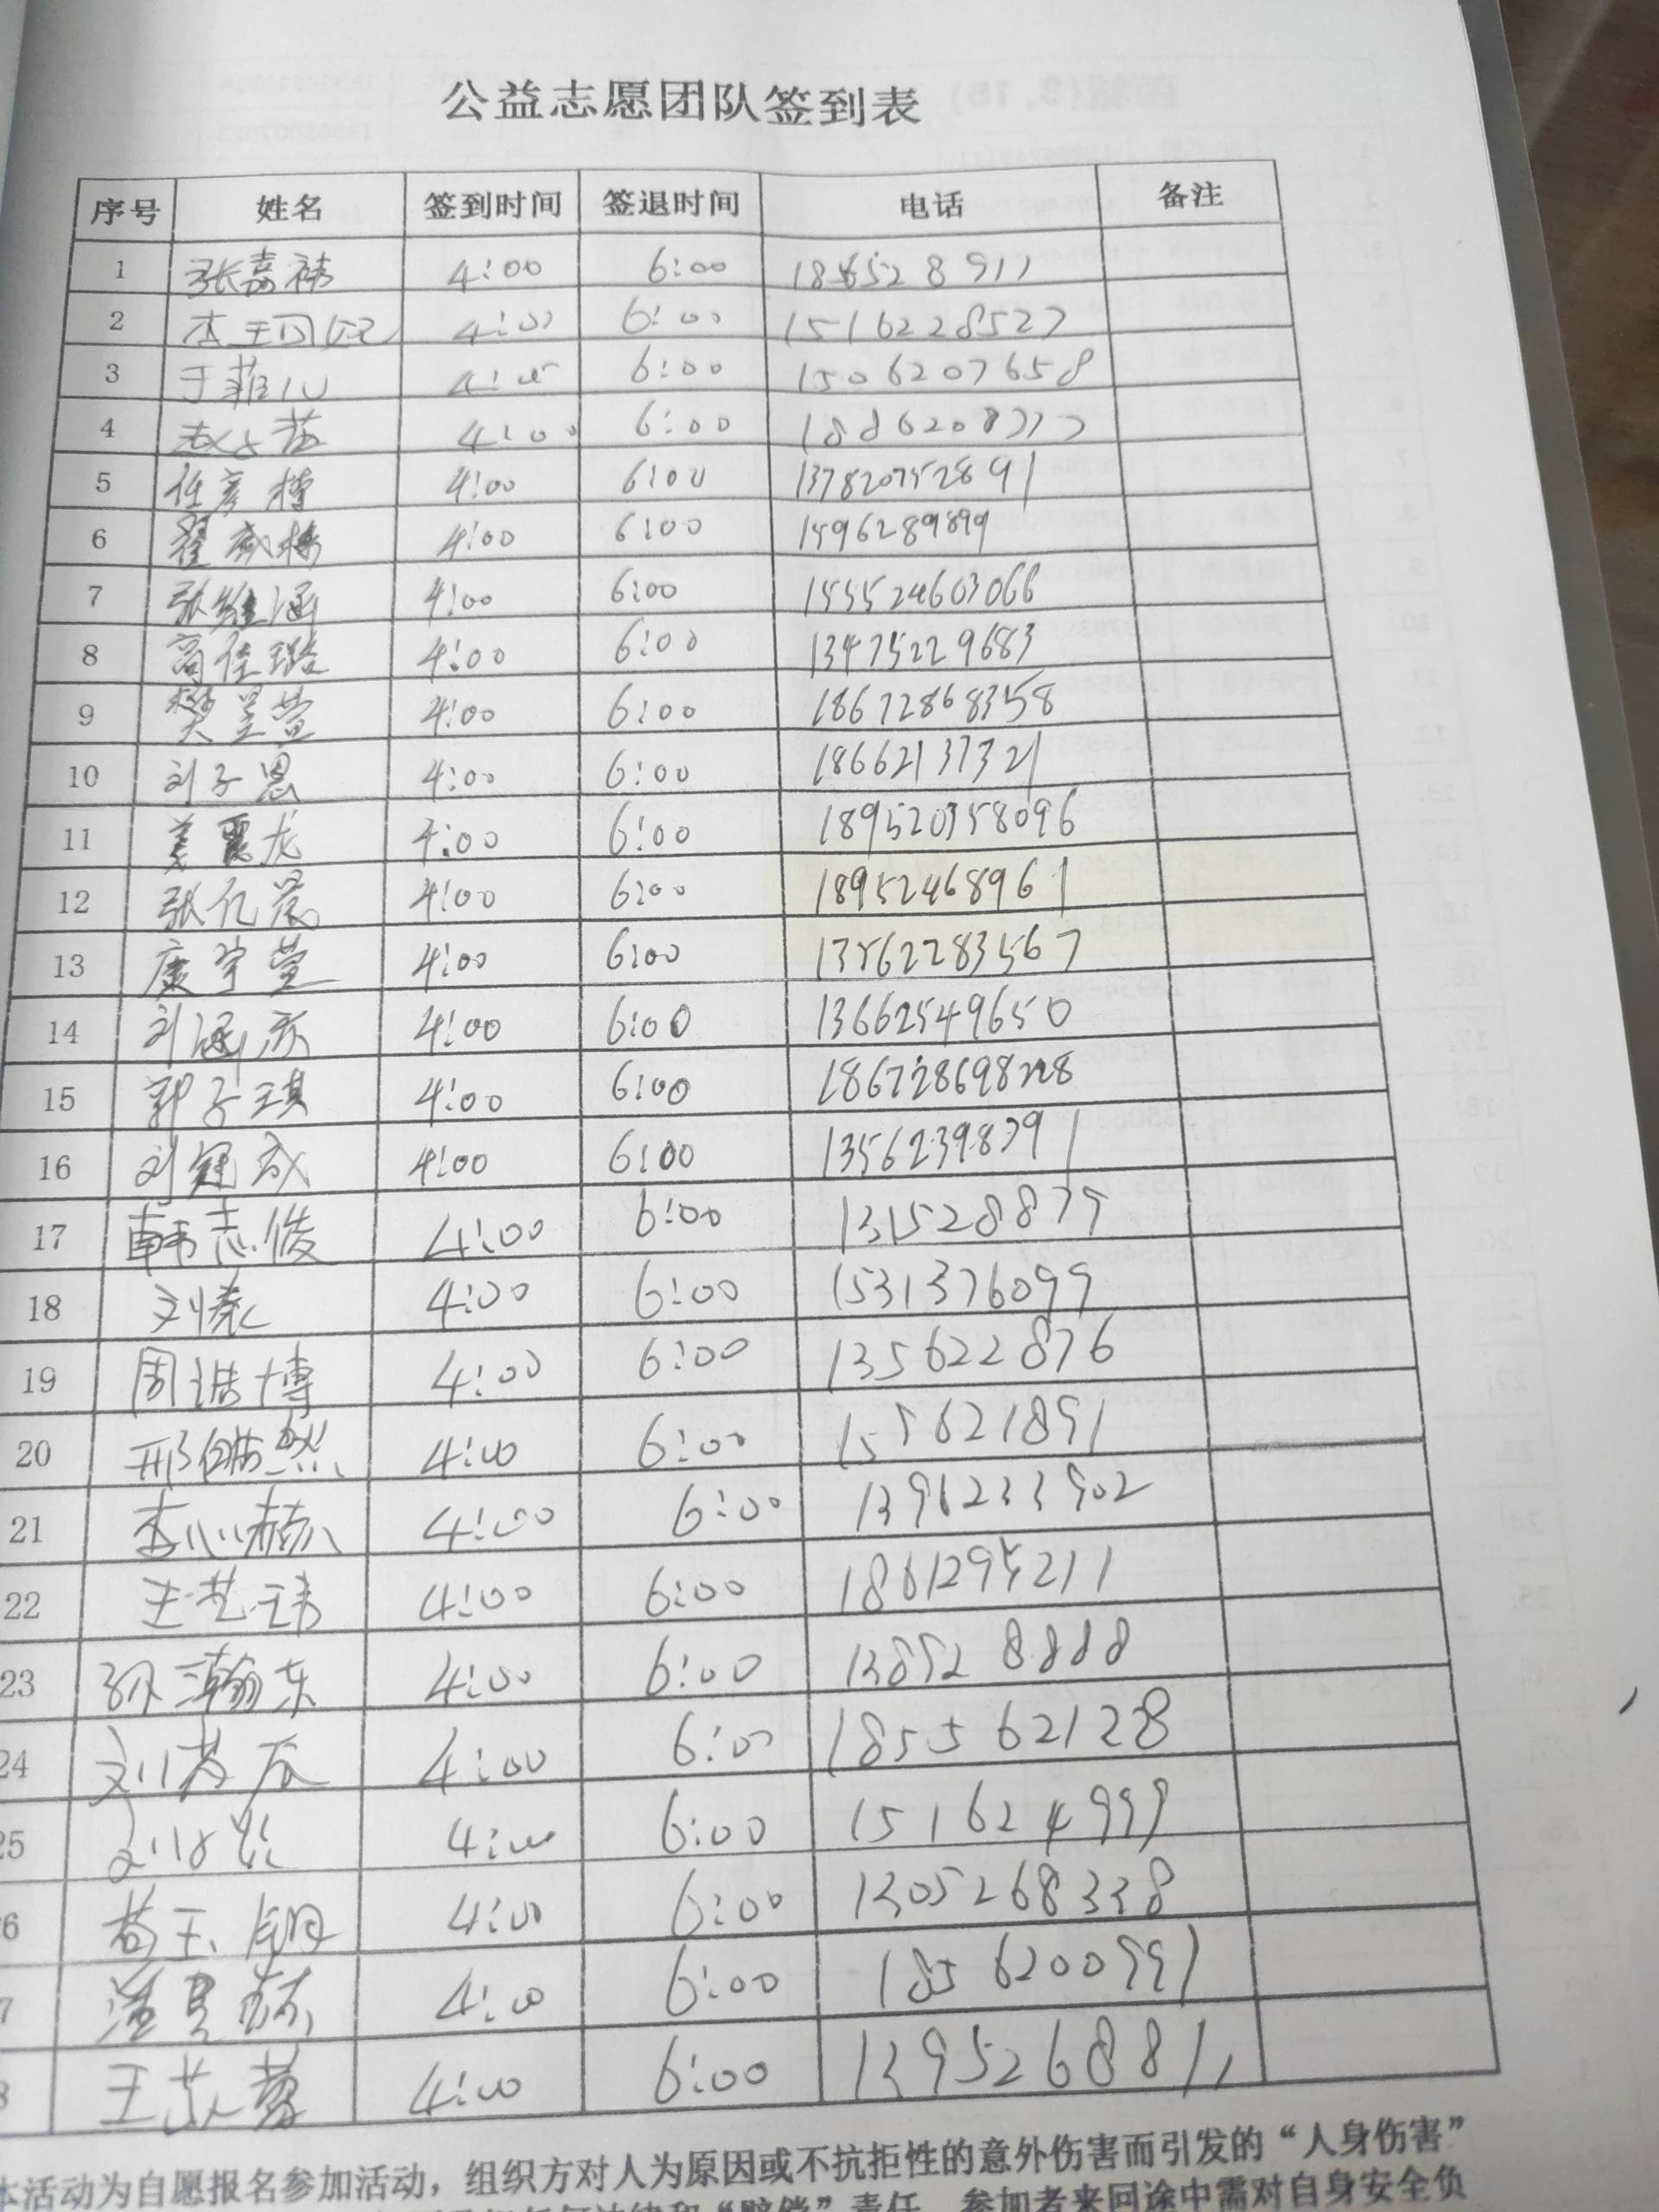 公益志愿团队签到表
序号 姓名 签到时间 签退时间 电话 备注
1 张嘉祎 4:00 6:00
2 6:00 1516228527
3 于菲儿 6:00 1506207658
4 4:00 6:00
5 任彦樟 4:00 6:00 137820752891
6 翟威栋 4:00 6:00 1596289899
7 张维涵 4:00 6:00 155524603066
8 高佳璐 4:00 6:00 13475229683
9 樊昱萱 4:00 6:00 18672868358
10 刘子恩 4:00 6:00 18662137321
11 姜震龙 4:00 6:00 189520358096
12 张亿宸 4:00 6:00 18952468961
13 康宇萱 4:00 6:00 13562283567
14 刘涵庆 4:00 6:00 13662549650
15 郭子琪 4:00 6:00
16 刘冠成 4:00 6:00 13562398391
17 韩志俊 4:00 6:00 131528879
18 4:00 6:00 1531376099
19 周浩博 4:00 6:00 135622876
20 邢皓然 4:00 6:00 155621891
21 李心赫 4:00 6:00 1396233902
22 王艺玮 4:00 6:00 1861295211
23 孙瀚东 4:00 6:00 138528888
24 4:00 6:00 185562128
25 4:00 6:00 151624999
6 苟玉钢 4:00 6:00 1305268338
7 4:00 6:00 1856200991
8 4:00 6:00
本活动为自愿报名参加活动，组织方对人为原因或不抗拒性的意外伤害而引发的“人身伤害”
“赔偿”责任，参加者来回途中需对自身安全负